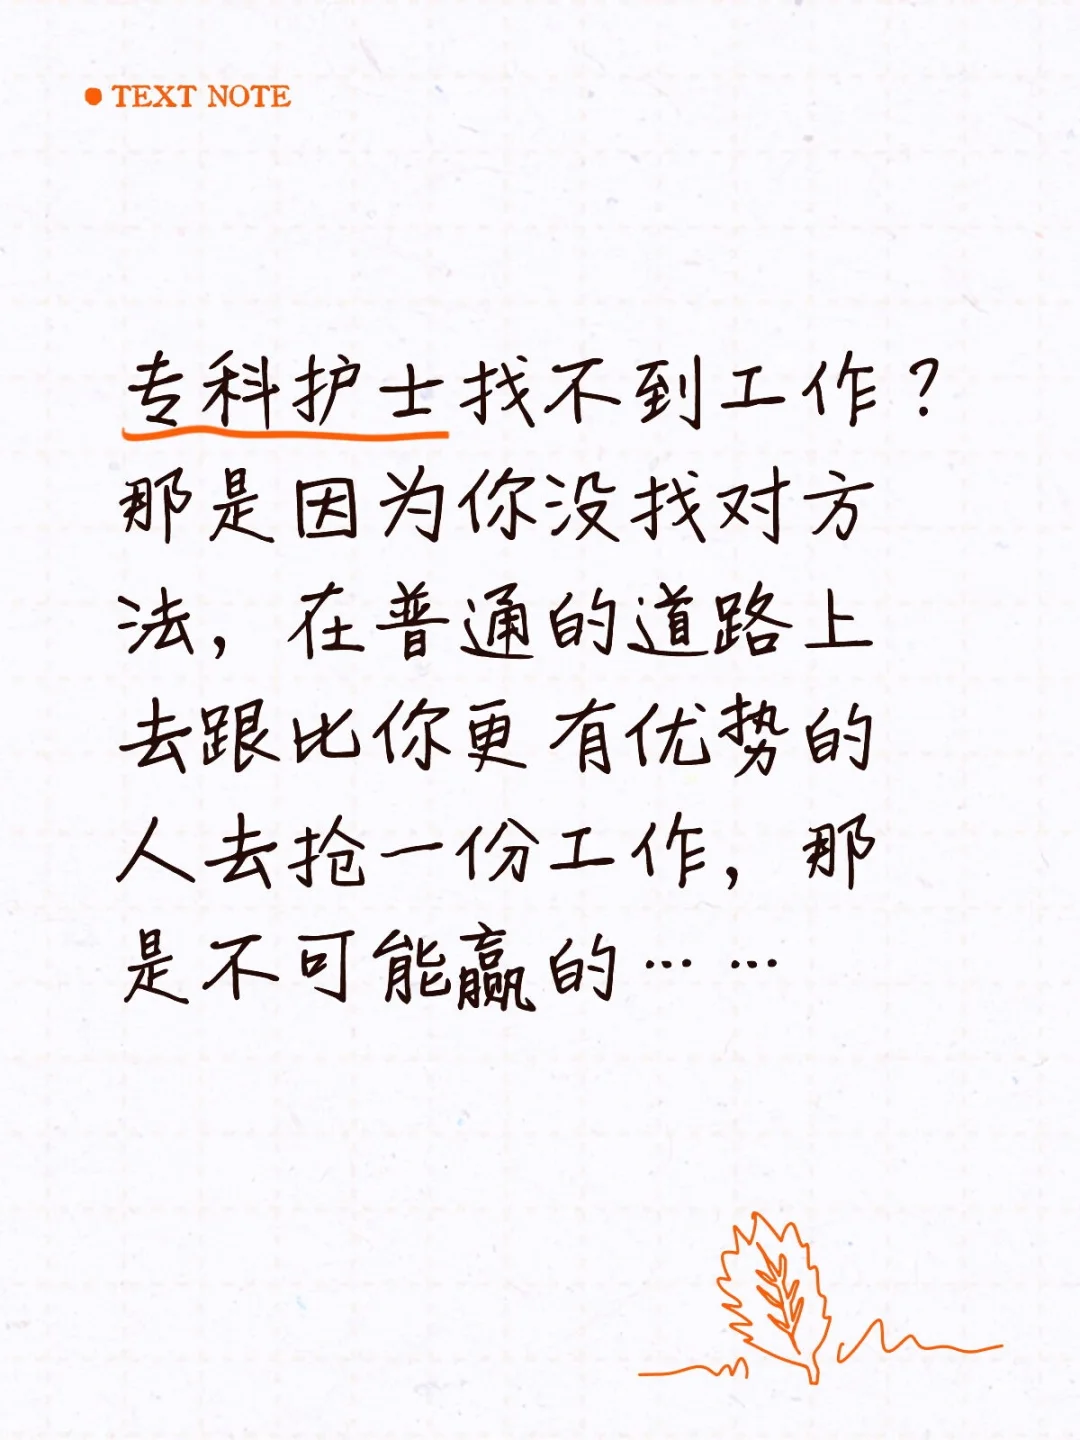 TEXT NOTE
专科护士找不到工作？
那是因为你没找对方
法，在普通的道路上
去跟比你更有优势的
人去抢一份工作，那
是不可能赢的……